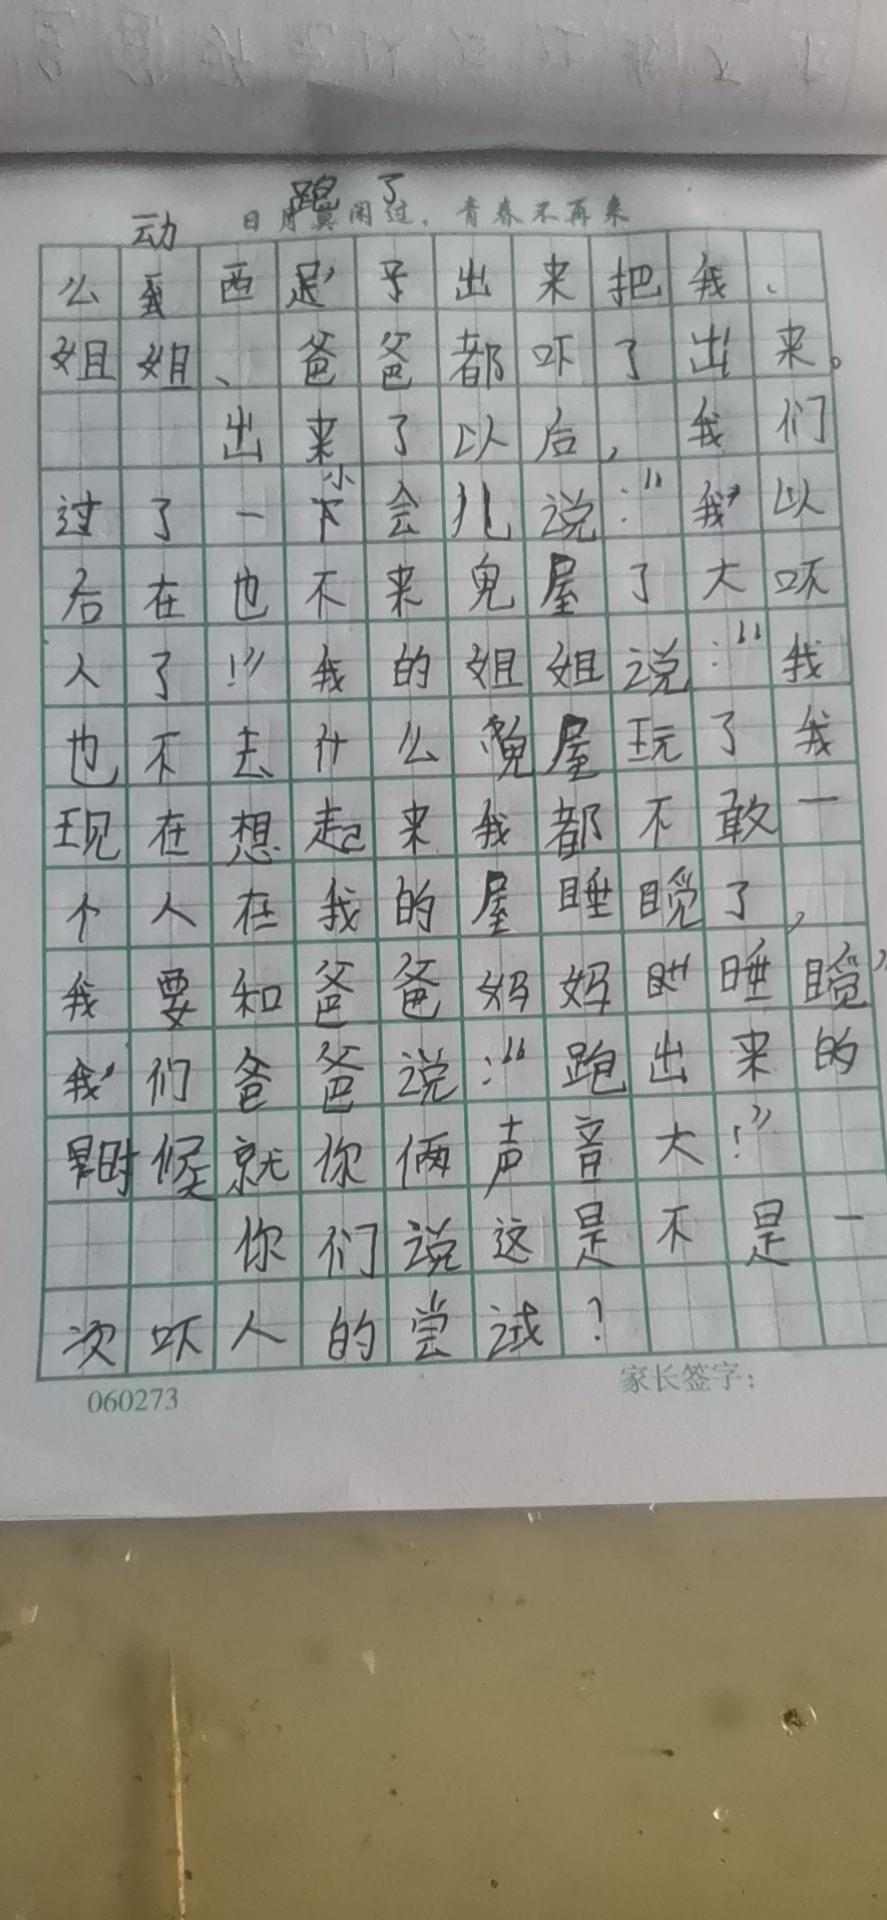 跑了
日月莫闲过，青春不再来
动
么 西 子出来把我、
姐姐、爸爸都吓了出来。
出来了以后，我们
过了一小会儿说：“我以
后在也不来鬼屋了大吓
人了！”我的姐姐说：“我
也不去什么鬼屋玩了我
现在想起来我都不敢一
个人在我的屋睡觉了，
我要和爸爸妈妈 睡觉”
我们爸爸说：“跑出来的
时候就你俩声音大！”
你们说这是不是一
次吓人的尝试？
060273
家长签字：